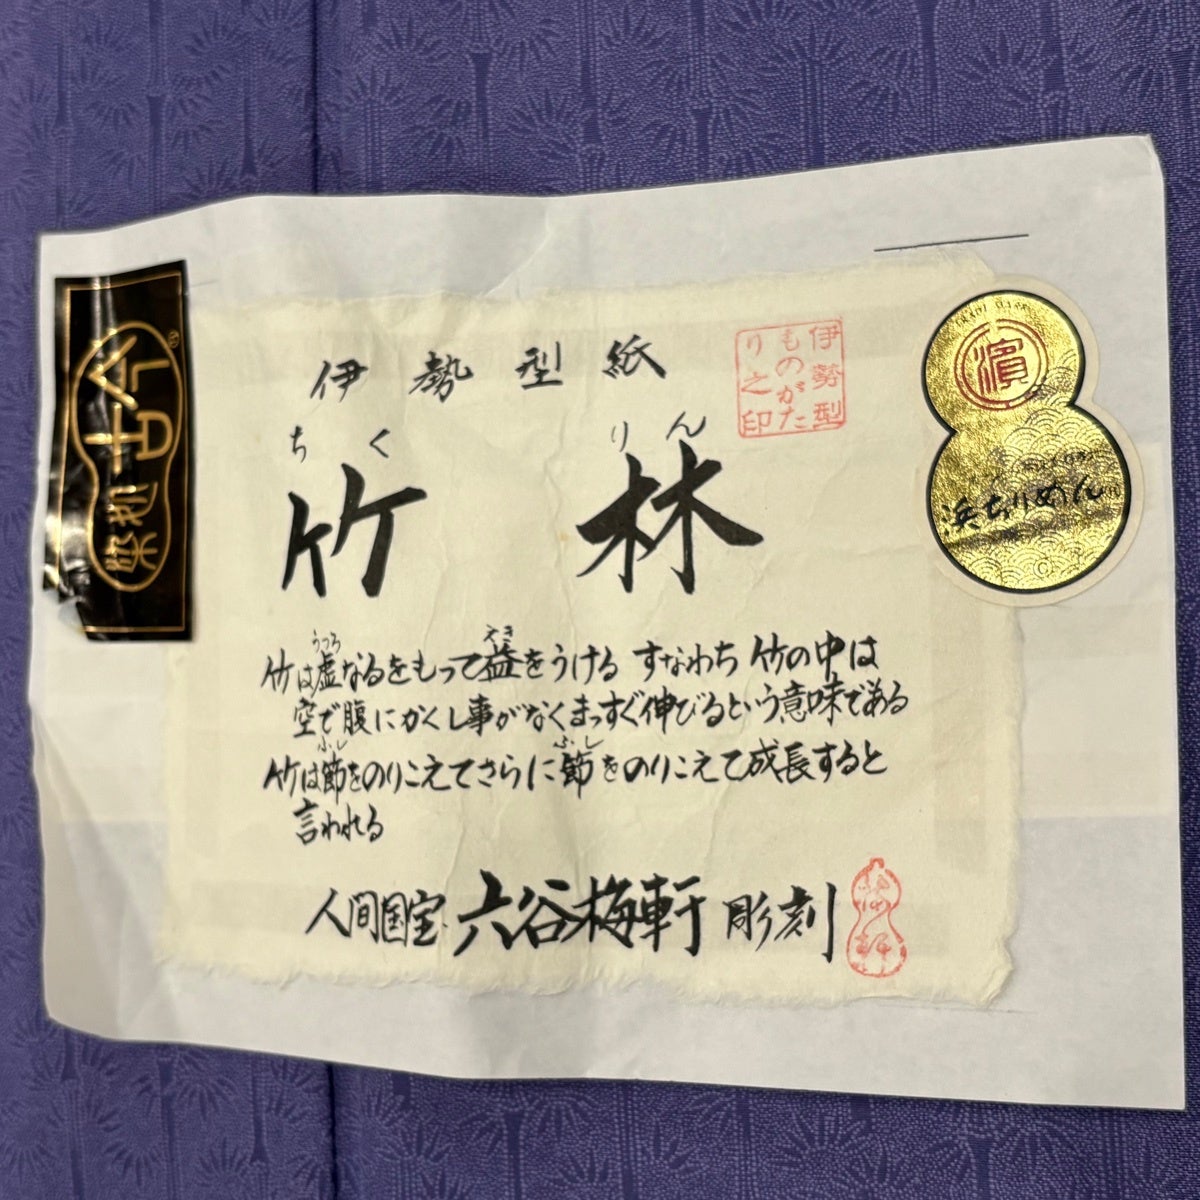 伊勢型紙
伊勢型
ものがた
り之印
ちくりん
竹林
竹は虚なるをもって益をうける すなわち 竹の中は
うつろ えき
空で腹にかくし事がなくまっすぐ伸びるという意味である
竹は節をのりこえてさらに節をのりこえて成長すると
ふし ふし
言われる
人間国宝 六谷梅軒 彫刻
梅軒
染処古今
濱
浜ちりめん